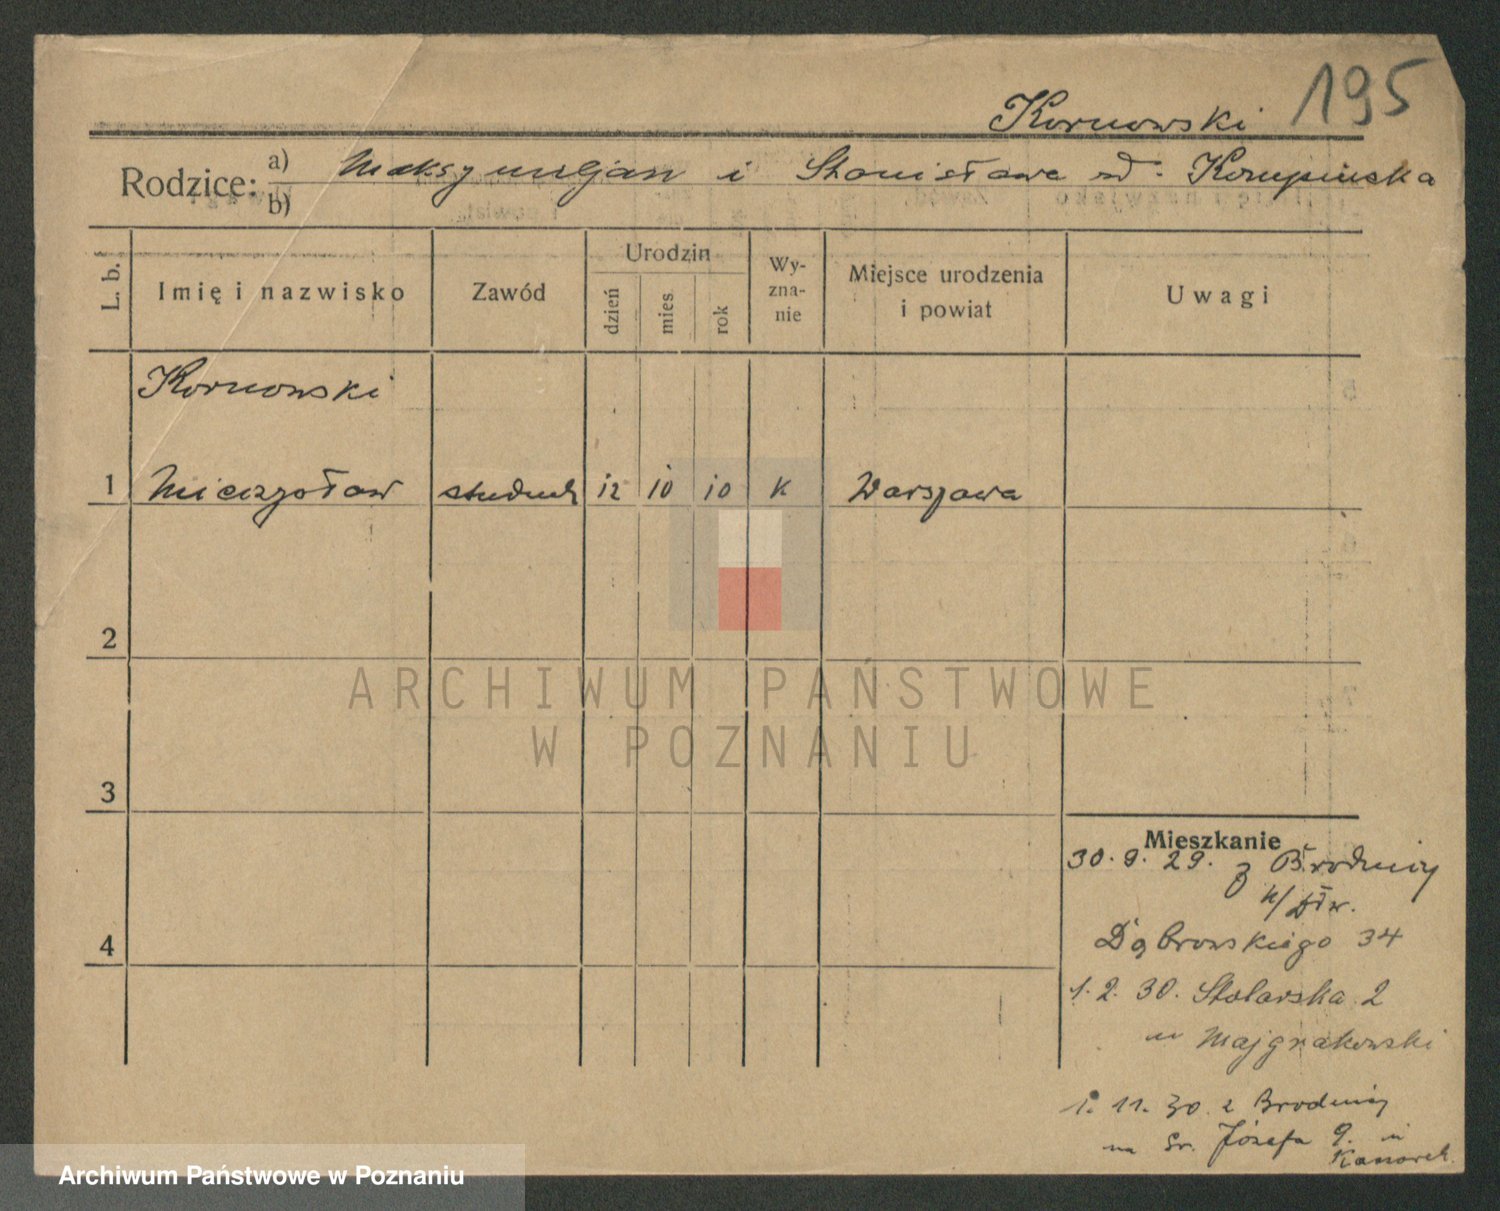 195
Kornowski
Rodzice: a) Maksymiljan i Stanisława
b)
L. b.
Imię i nazwisko
Zawód
Urodzin
dzień
mies
rok
Wy-
zna-
nie
Miejsce urodzenia
i powiat
Uwagi
Kornowski
1 Mieczysław student 12 10 10 K Warszawa
2
3
4
ARCHIWUM PAŃSTWOWE
W POZNANIU
Mieszkanie
30.9.29. z Brodnicy
Dąbrowskiego 34
1.2.30. Stolarska 2
u
1.11.30 z Brodnicy
na św. Józefa 9. u
Archiwum Państwowe w Poznaniu